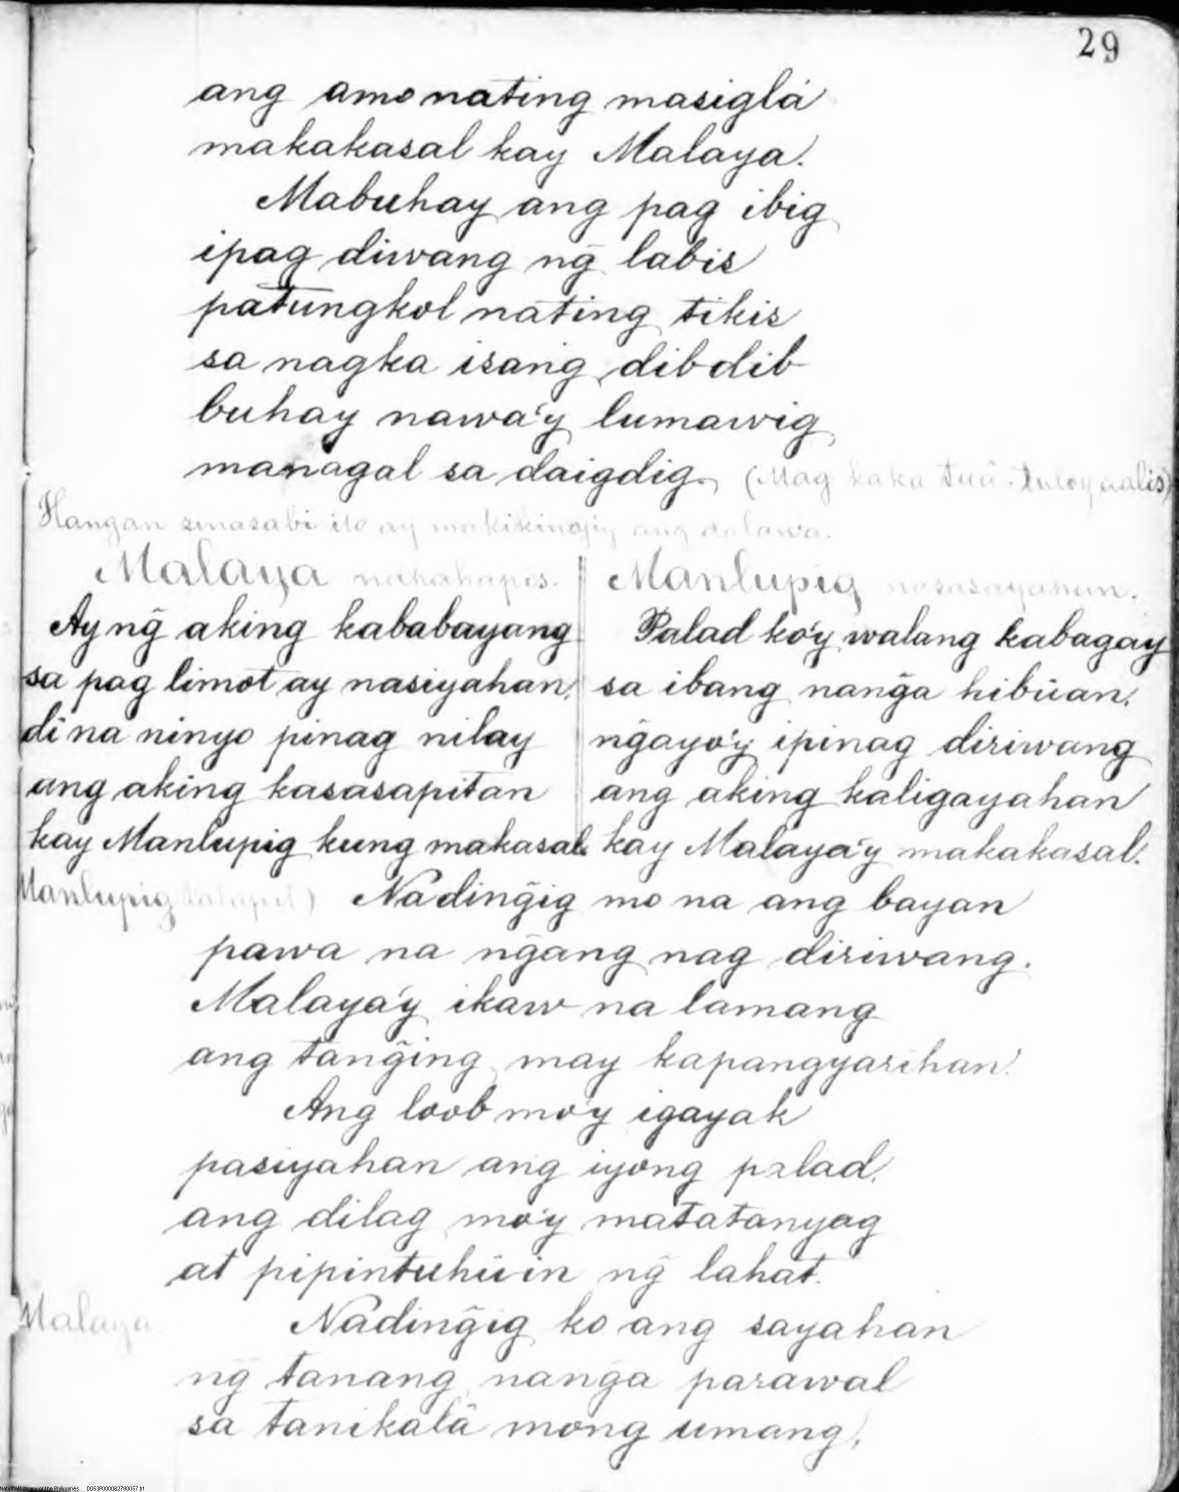 29
ang amo nating masiglá
makakasal kay Malaya.
Mabuhay ang pag ibig
ipag diwang ng̃ labis
patungkol nating tikis
sa nagka isang dibdib
buhay nawa'y lumawig
managal sa daigdig. (Mag kaka tuá. tuloy aalis)
Hangan sinasabi ito ay makikinyig ang dalawa.
Malaya nahahapis.
Ay ng̃ aking kababayang
sa pag limot ay nasiyahan,
di na ninyo pinag nilay
ang aking kasasapitan
kay Manlupig kung makasal.
Manlupig nasasayahan.
Palad ko'y walang kabagay
sa ibang nang̃a hibúan,
ng̃ayo'y ipinag diriwang
ang aking kaligayahan
kay Malaya'y makakasal.
Manlupig lalapit) Nading̃ig mo na ang bayan
pawa na ng̃ang nag diriwang.
Malaya'y ikaw na lamang
ang tang̃ing may kapangyarihan.
Ang loob mo'y igayak
pasiyahan ang iyong palad,
ang dilag mo'y matatanyag
at pipintuhúin ng̃ lahat.
Malaya Nading̃ig ko ang sayahan
ng̃ tanang nang̃a parawal
sa tanikalâ mong umang,
National Library of the Philippines